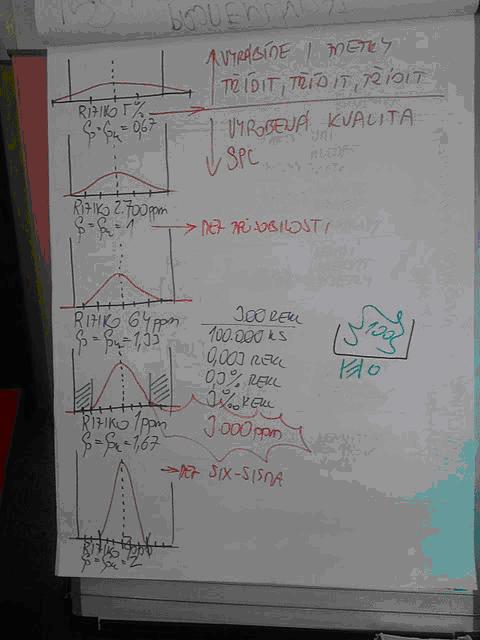 VYRÁBÍME I ZMETKY
TŘÍDIT, TŘÍDIT, TŘÍDIT
RIZIKO 5%
Cp=Cpk=0,67
VYROBENÁ KVALITA
SPC
RIZIKO 2.700 ppm
Cp=Cpk=1
MEZ ZPŮSOBILOSTI
RIZIKO 64 ppm
Cp=Cpk=1,33
300 REKL
100.000 KS
0,003 REKL
0,3% REKL
3‰ REKL
3000 ppm
100
RIZIKO 1 ppm
Cp=Cpk=1,67
MEZ SIX-SIGMA
RIZIKO
Cp=Cpk=2